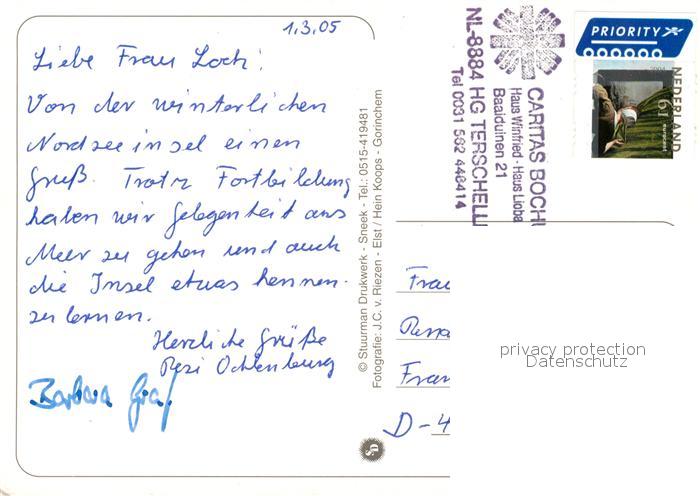 1.3.05
Liebe Frau Loch!
Von der winterlichen
Nordseeinsel einen
Gruß. Trotz Fortbildung
haben wir Gelegenheit ans
Meer zu gehen und auch
die Insel etwas kennen-
zulernen.
Herzliche Grüße
Resi Ochlenburg
Barbara Graf
© Stuurman Drukwerk - Sneek - Tel.: 0515-419481
Fotografie: J.C. v. Riezen - Elst / Hein Koops - Gorinchem
SD
CARITAS BOCH
Haus Winfried - Haus Lioba
Baalduinen 21
NL-8884 HG TERSCHELLI
Tel 0031 562 448414
PRIORITY
2004
NEDERLAND
61 eurocent
Frau
Fran
D-4
privacy protection
Datenschutz